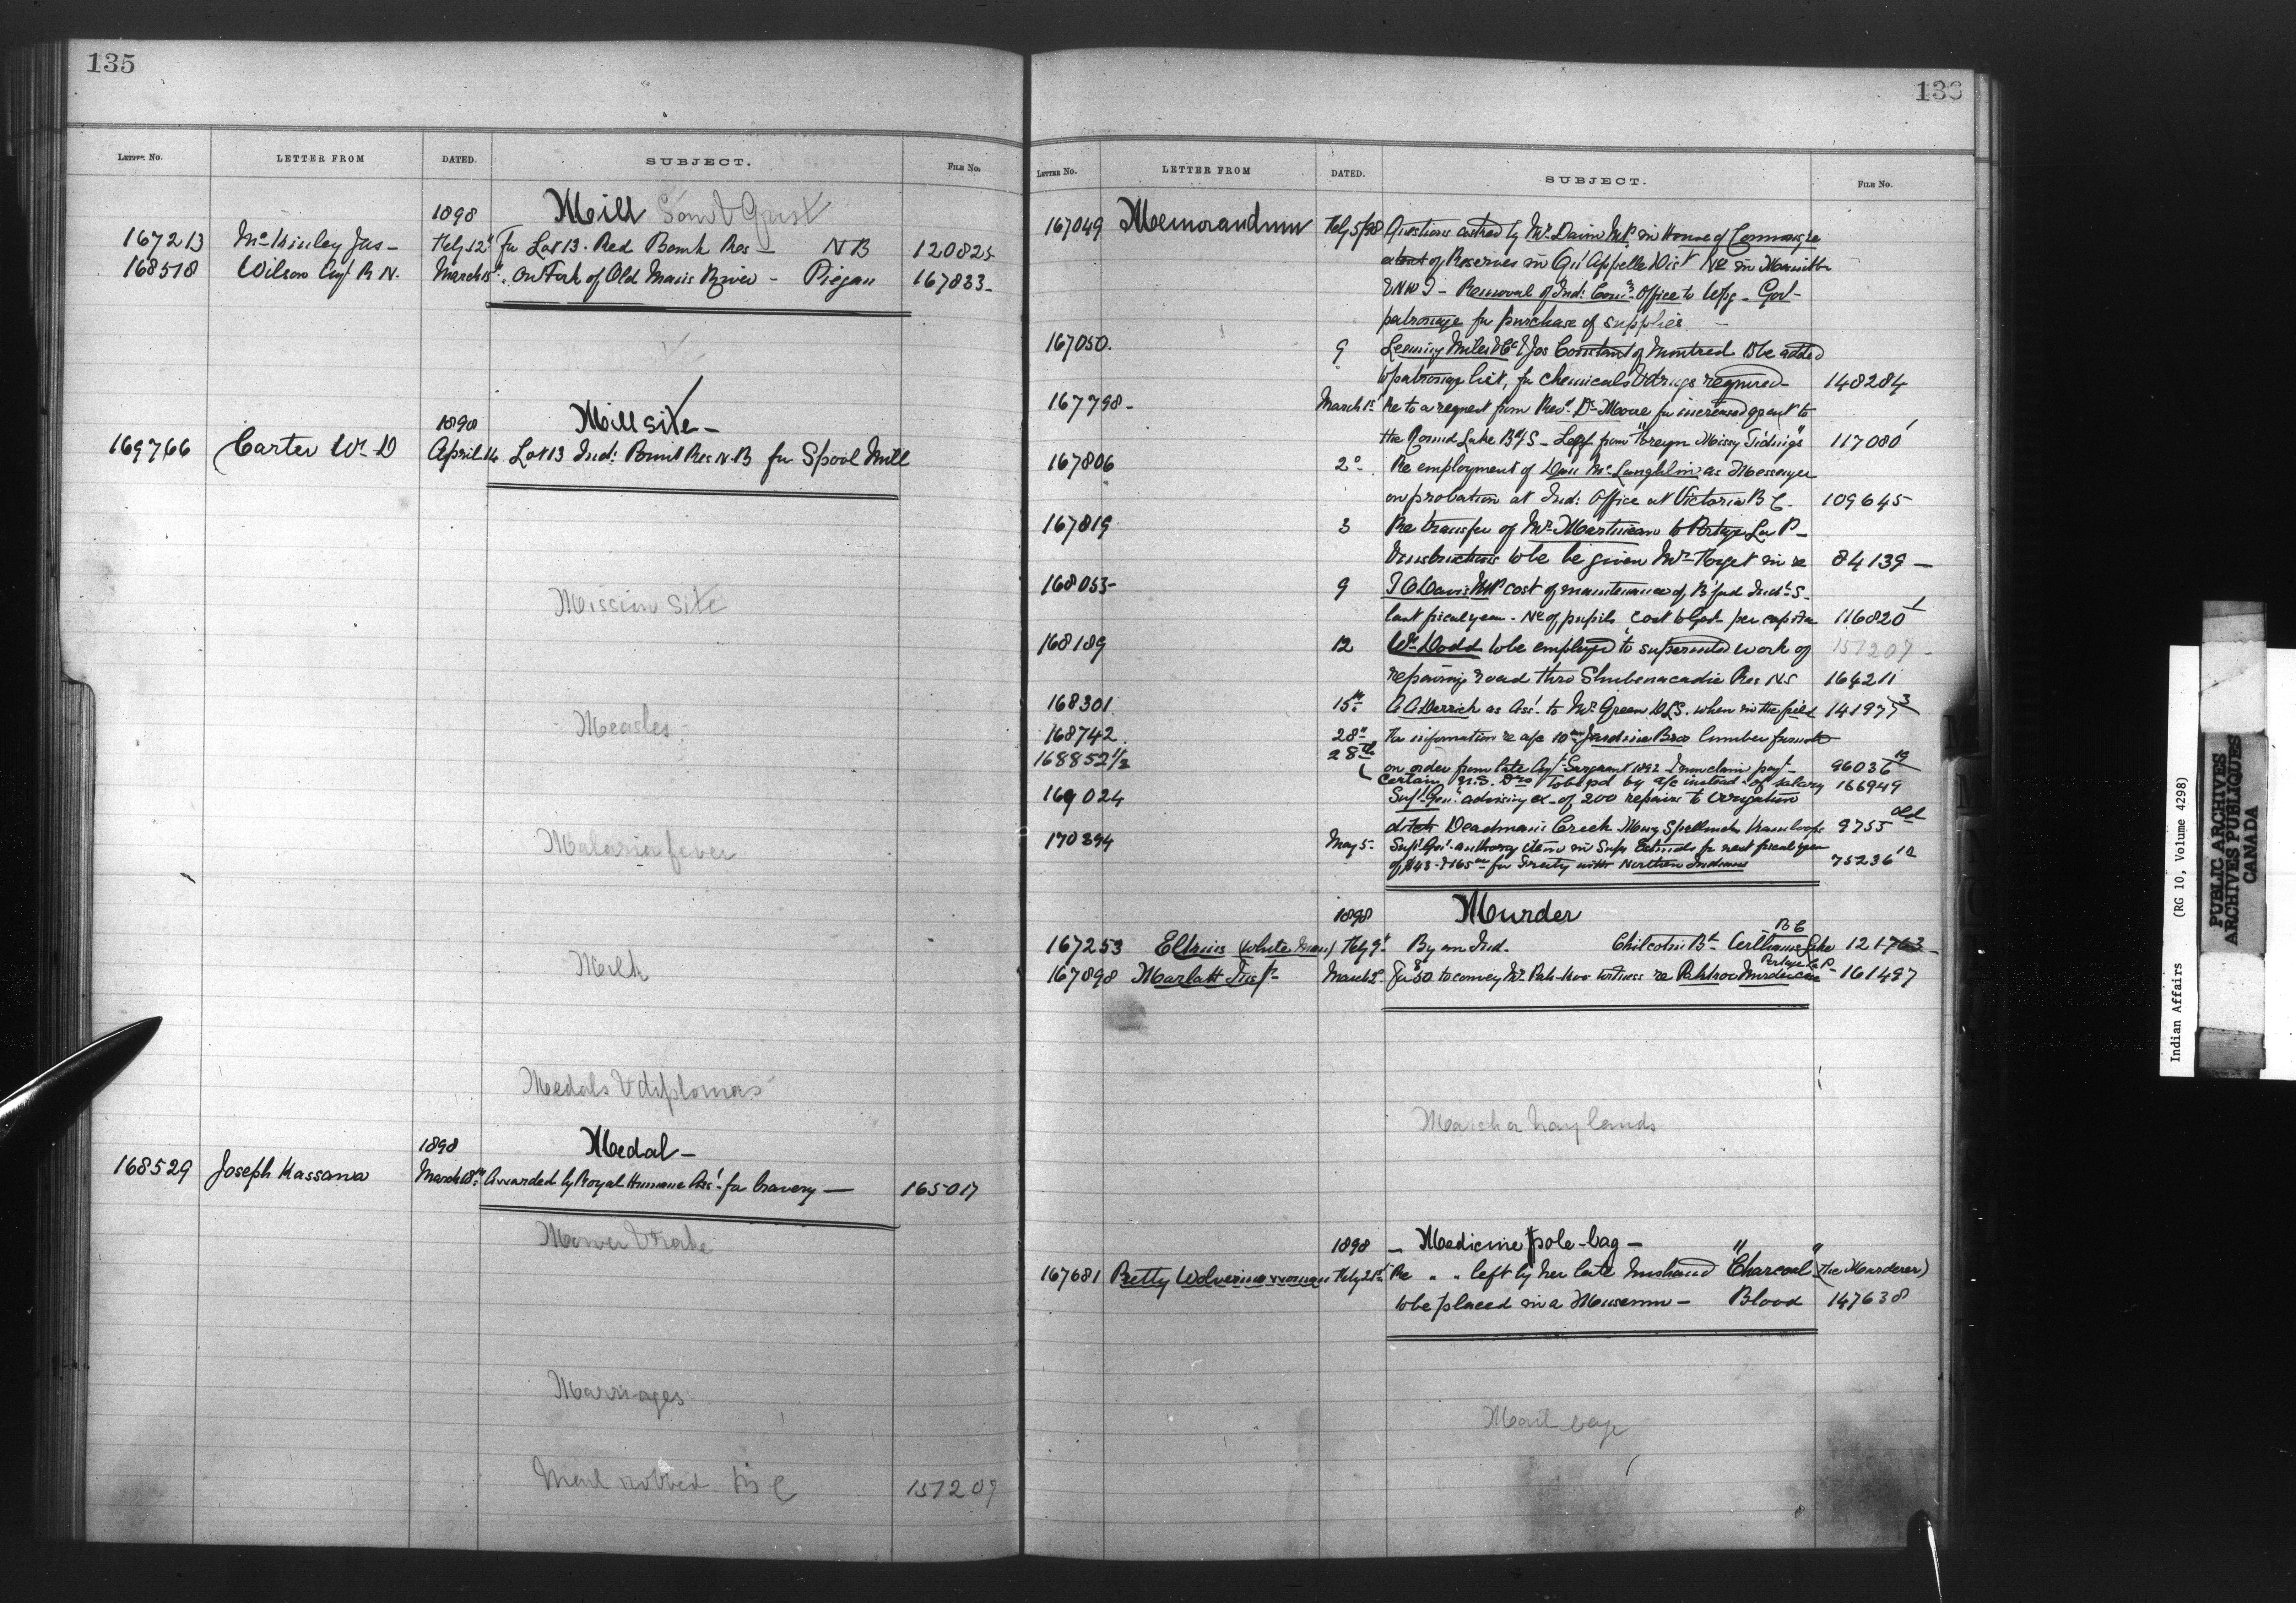 135
LETTER No. LETTER FROM DATED. SUBJECT. FILE No.
1898 Mill Saw & Grist
167213 McKinley Jas - Feby 12th For Lot 13. Red Bank Res - N B 120825
168518 Wilson Agt R N. March 15th On Fork of Old Mans River - Piegan 167833 -
1898 Mill site -
169766 Carter Wm D April 14 Lot 13 Ind: Res N.B for Spool Mill
Mission Site
Measles -
Malaria fever
Milk
Medals & diplomas
1898 Medal -
168529 Joseph Kassawa March 18th Awarded by Royal Humane Ass'. for bravery - 165017
Mower & rake
Marriages
Mail robbed B C 157209
136
LETTER No. LETTER FROM DATED. SUBJECT. FILE No.
167049 Memorandum Feby 5/98 Questions asked by Mr. Davin M.P. in House of Commons, re
of Reserves in Qu'Appelle Dist No in Manitba
& N W T - Removal of Ind: Comrs Office to Wpg - Govt
patronage for purchase of supplies -
167050. 9 Leeming Miles & Co & Jos Constant of Montreal to be added
to patronage list, for chemicals & drugs required - 148284
167798 - March 1st Re to a request from Revd Dr Moore for increased grant to
the Round Lake Bdg S - from "Foreign Missy Tidings" 117080 1
167806 2d. Re employment of Dan McLaughlin as Messenger
on probation at Ind: Office at Victoria B C. 109645
167819 3 Re transfer of Mr. Martineau to Portage La P -
& instructions to be be given Mr. Forget in re 84139 -
168055 9 T O Davis M.P. cost of maintenance of B'ford Indl S -
last fiscal year - No of pupils, cost to Govt per capita 116820 1
168189 12 Wm Dodd to be employed to superintd work of 157209 -
repairing road thro Shubenacadie Res N S 164211
168301 15th A A Derrick as Ass'. to Mr. Green D.L.S. when in the field 141977 3
168742. 28th For information re a/c 10 Jardine Bros lumber furnd
168852 1/2 28th on order from late Agt Sargeant 1892 & now claim payt - 96036
Certain N.S. Drs to be pd by a/c instead of salary 166949
169024 Supt Genl advising ex - of 200 repairs to irrigation
ditch Deadman's Creek Kamloops 9755 Old
170394 May 5 - Supt Genl authory item in Supy Estimates for next fiscal year
for Treaty with Northern Indians 75236 1A
1898 Murder
B C
167253 Elkins (white man) Feby 9th By an Ind. Chilcotin Bd - Williams Lake 121763 -
Portage La P -
167898 Marlatt Insp. March 2d For $50 to convey witness re Pahkoo Murder case 161497
Marsh or hay lands
1898 - Medicine pole-bag - " "
167681 Pretty Wolverine woman Feby 21st Re " " left by her late husband "Charcoal" (the Murderer)
to be placed in a Museum - Blood 147638
Mail bags
Indian Affairs (RG 10, Volume 4298)
PUBLIC ARCHIVES
ARCHIVES PUBLIQUES
CANADA